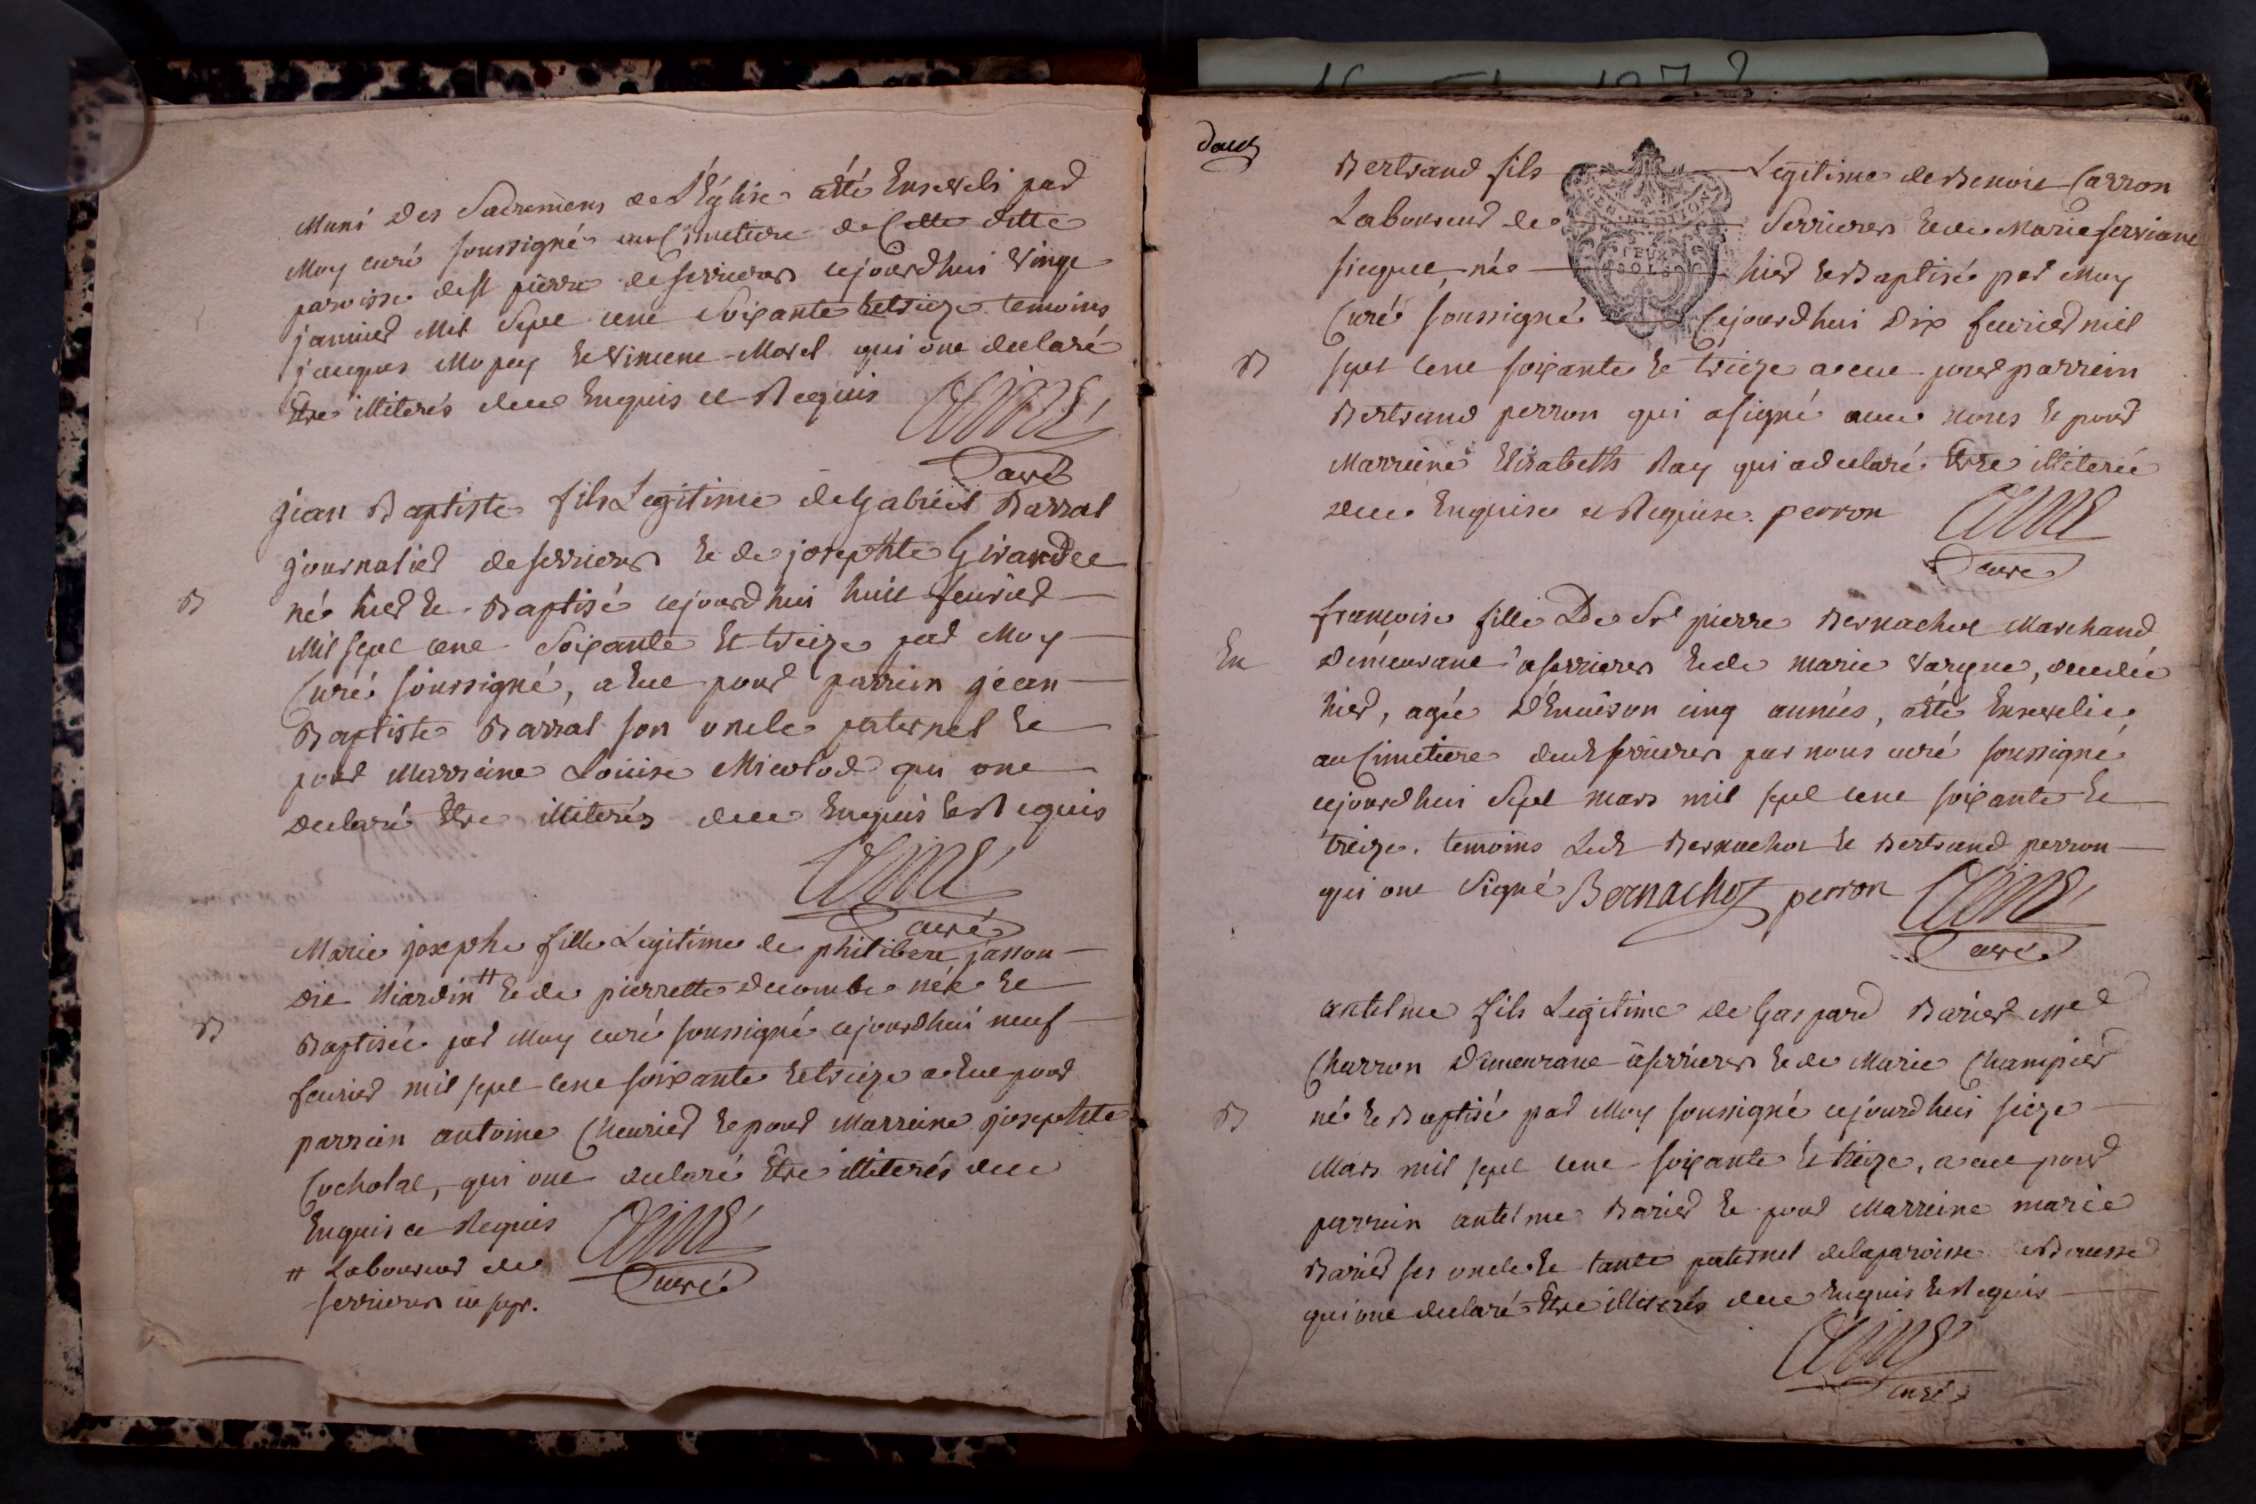 Muni des Sacremens de L'Église a été Enseveli par
Moy curé soussigné au Cimetiere de Cette ditte
paroisse de st pierre de serrieres cejourdhui vingt
janvier Mil Sept cent Soixante et treize temoins
jacques Mopey et vincent Morel qui ont declaré
Etre illiterés de ce Enquis et Requis
Curé
jean Baptiste fils Legitime de Gabriel Barral
journalier de serrieres et de josephte Girandet
B
né hier et Baptisé cejourdhui huit fevrier
Mil sept cent Soixante et treize par Moy
Curé soussigné, a eu pour parrein jean
Baptiste Barral son oncle paternel et
pour Marreine Louise Micolod qui ont
declaré Etre illiterés de ce Enquis et Requis
curé
Marie josephe fille Legitime de philibert jasson
dit Miardin # et de pierrette decombe née et
B
Baptisée par Moy curé soussigné cejourdhui neuf
fevrier mil sept cent soixante et treize a eu pour
parrein antoine Chevrier et pour Marreine josephte
Cochotat, qui ont declaré Etre illiterés de ce
Enquis et Requis
curé
# Laboureur de
serrieres
douz
Bertrand fils Legitime de Benoit Carron
Laboureur de Serrieres et de Marie serviane
DEUX
SOLS
sicquet, né hier et Baptisé par Moy
Curé soussigné Cejourdhui Dix fevrier mil
B
sept cent soixante et treize a eu pour parrein
Bertrand perron qui a signé avec nous et pour
Marreine Elisabeth Ray qui a declaré Etre illiterée
de ce Enquise et Requise. perron
curé
françoise fille De Sr pierre Bernachot Marchand
En
Demeurant a serrieres et de marie vargne, decedée
hier, agée D'Environ cinq années, a été Ensevelie
au Cimetiere dud serrieres par nous curé soussigné
cejourdhui Sept mars mil sept cent soixante et
treize. temoins Led Bernachot et Bertrand perron
qui ont Signé Bernachot perron
curé
antelme fils Legitime de Gaspard Barier Me
Charron Demeurant a serrieres et de Marie Champier
B
né et Baptisé par Moy soussigné cejourdhui seize
Mars mil sept cent soixante et treize, a eu pour
parrein antelme Barier et pour Marreine marie
Barier ses oncle et tante paternel de la paroisse
qui ont declaré Etre illiterés de ce Enquis et Requis
curé